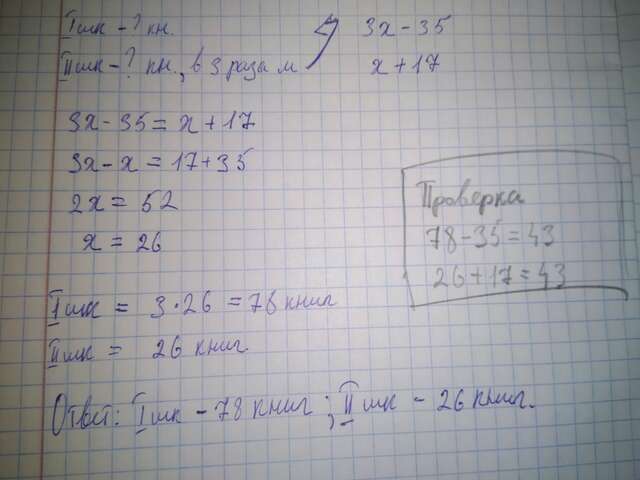 I шк - ? кн. 3x - 35
II шк - ? кн., в 3 раза м x + 17
3x - 35 = x + 17
3x - x = 17 + 35
2x = 52
x = 26
Проверка
78 - 35 = 43
26 + 17 = 43
I шк = 3 · 26 = 78 книг
II шк = 26 книг
Ответ: I шк - 78 книг ; II шк - 26 книг.